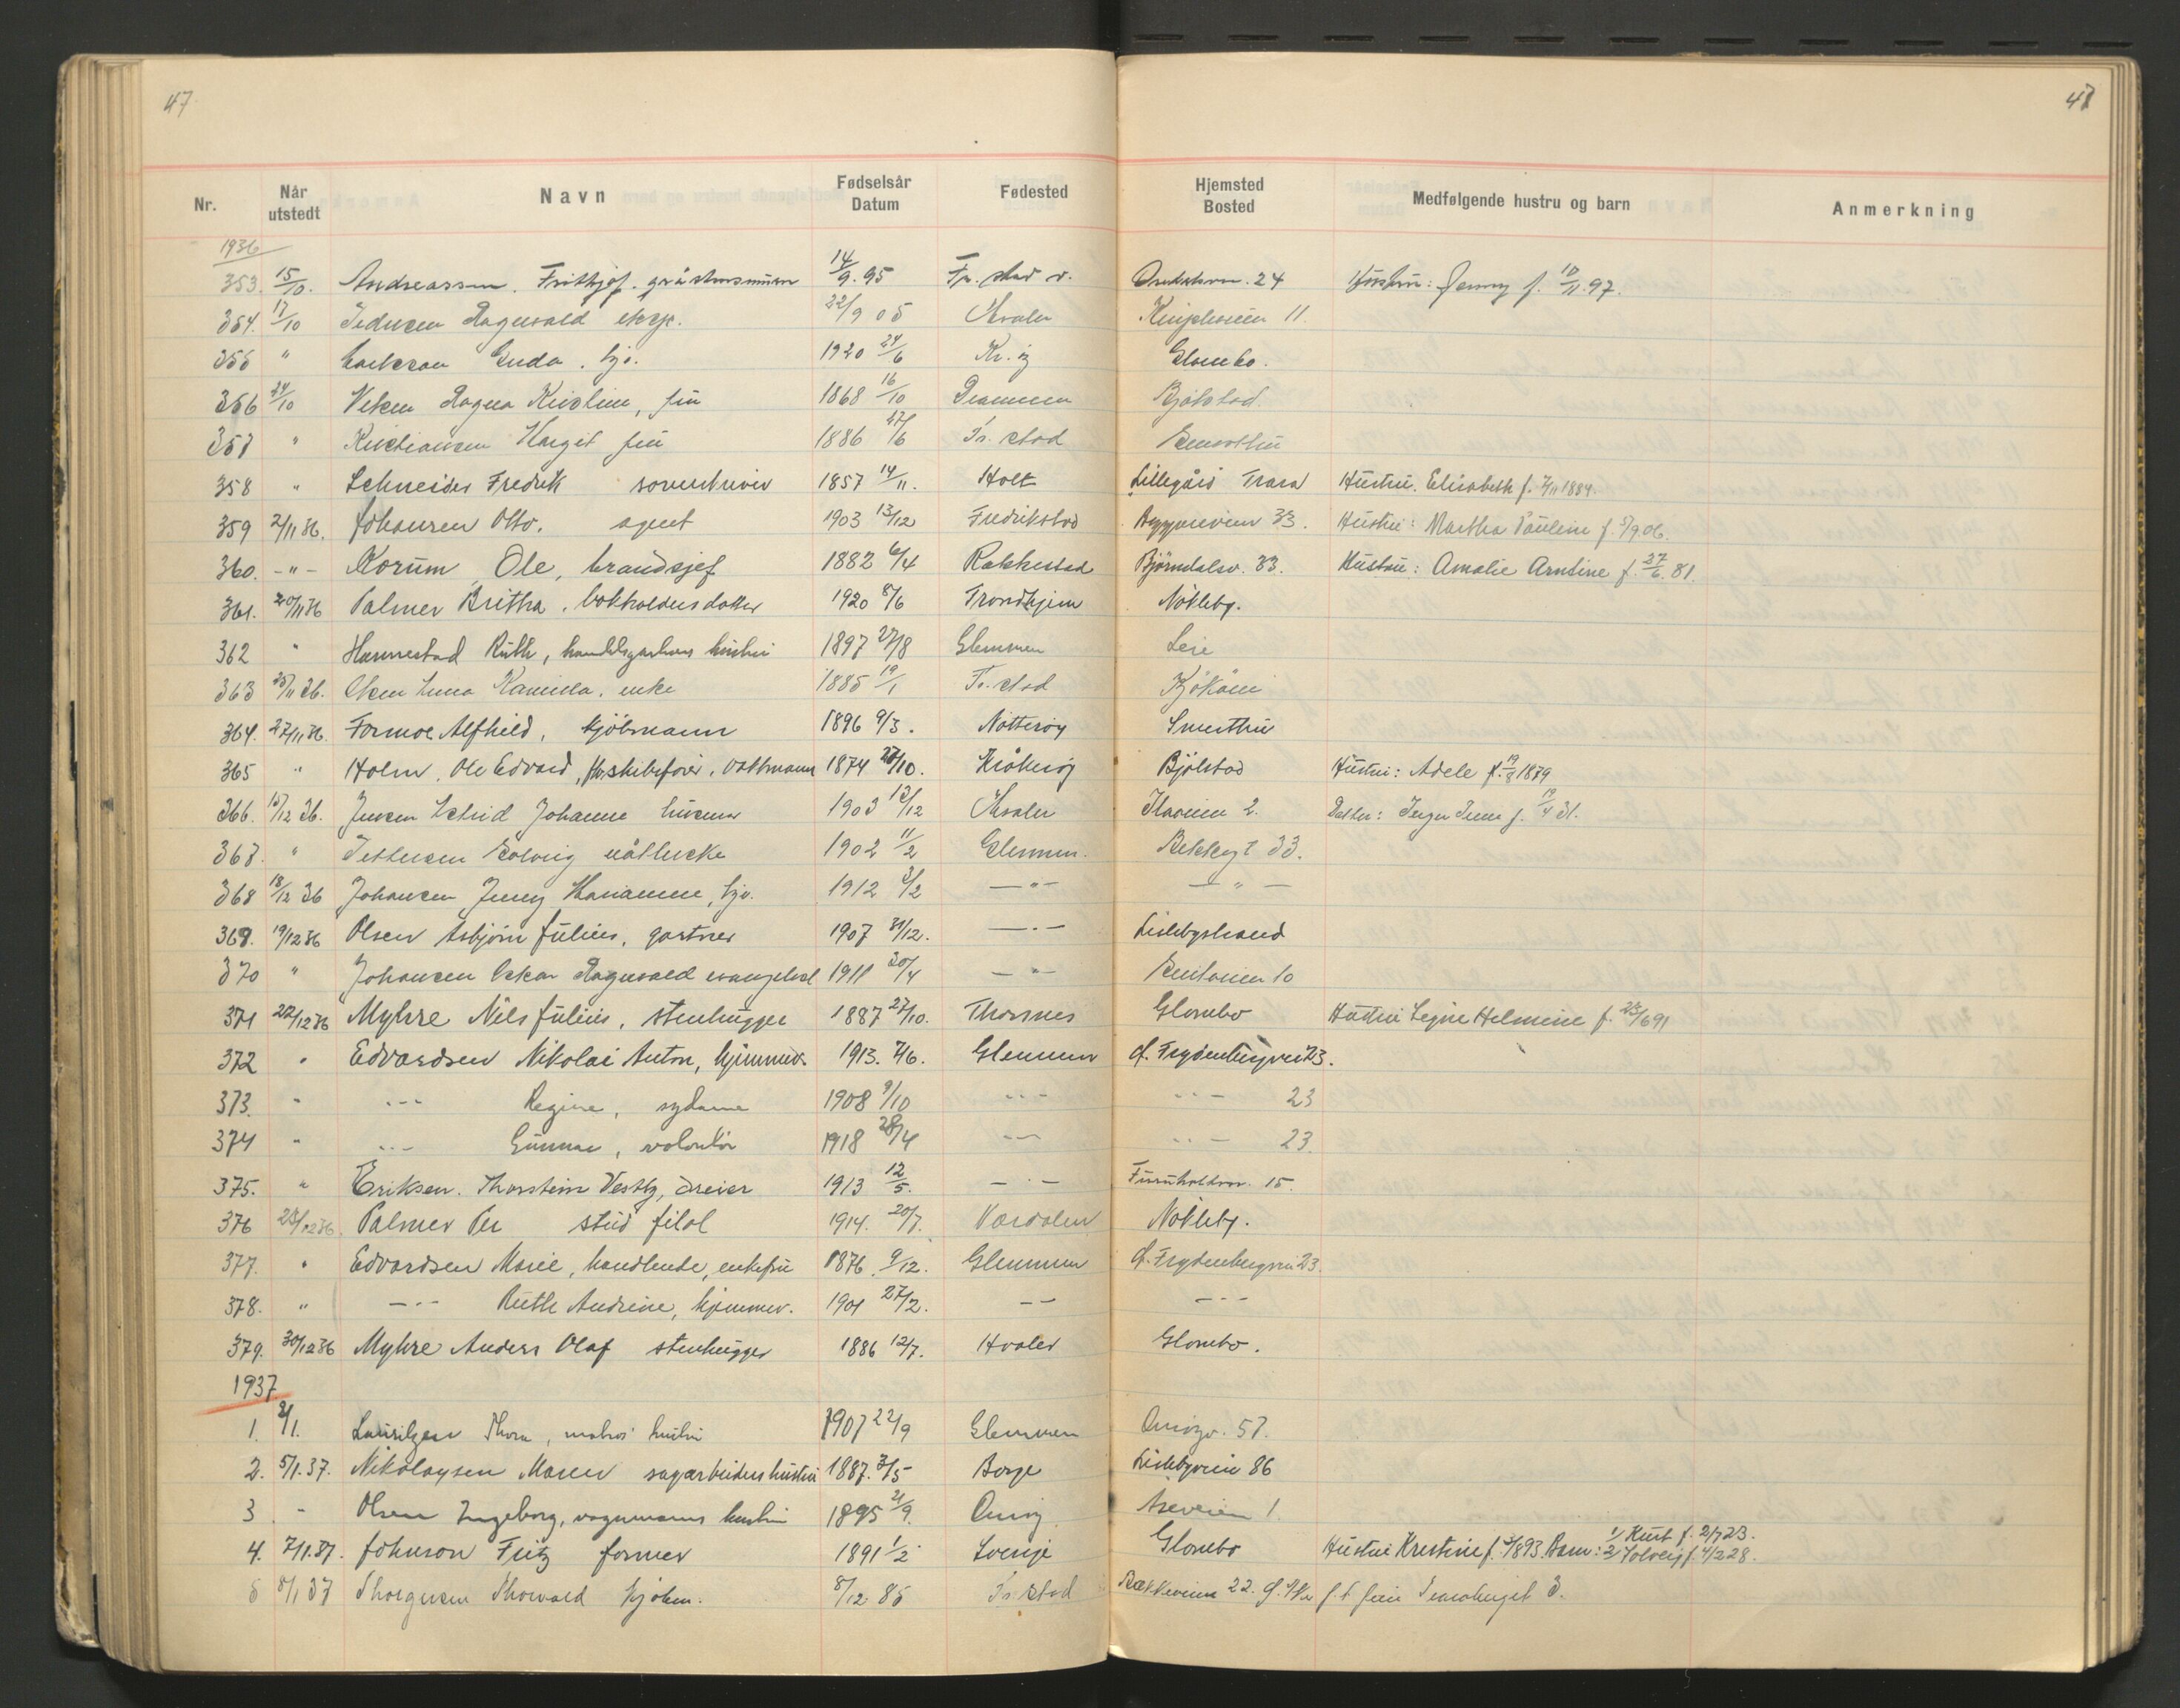 47
47
Nr. Når utstedt Navn Fødselsår Datum Fødested Hjemsted Bosted Medfølgende hustru og barn Anmerkning
1936
353. 15/10. Andreassen. Frithjof. 14/9. 95 Fr. stad 24 Hustru: Jenny f. 10/11 97.
354. 17/10 Ragnvald 22/9 05 Hvaler 11
355 " Guda. 1920 24/6 Glombo.
356 24/10 Ragna Kristine, fru 1868 16/10 Drammen Bjølstad
357 " Kristiansen Margit fru 1886 27/6 Fr. stad
358 " Schneider Fredrik sorenskriver 1857 14/11. Holt Lillegård Trara Hustru. Elisabeth f. 1884.
359 2/11 36. Johansen Otto. agent 1903 13/12 Fredrikstad 33. Hustru: Martha Pauline f. 5/9 06.
360. -"- Korum Ole, brandsjef 1882 6/4 Rakkestad Bjørndalsv. 33. Hustru: Amalie Arntine f. 27/6. 81.
361. 20/11 36 Palmer Britha, bokholders datter 1920 8/6 Trondhjem Nøkleby.
362 " Hannestad Ruth, hustru 1897 27/8 Glemmen Leie
363 25/11 36. Olsen Anna Kamilla, enke 1885 19/1 Fr. stad
364. 27/11 36. Formoe Alfhild, kjøbmann 1896 9/3. Nøtterøy Smertu
365 " Holm, Ole Edvard, skibsfører, vaktmann 1874 28/10. Kråkerøy Bjølstad Hustru: Adele f. 19/8 1879
366. 15/12 36. Jensen Astrid Johanne husmor 1903 13/12 Hvaler 2. Datter: Inger f. 19/4 31.
367. " Solveig 1902 11/2 Glemmen. 33.
368 18/12 36 Johansen Jenny Marianne, hjv. 1912 3/2 —"— —"—
369. 19/12 36 Olsen Asbjørn Julius, gartner 1907 31/12. —"— Lislebystrand
370 " Johansen Oskar Ragnvald evangelist 1911 30/4 —"— 10
371 22/12 36 Myhre Nils Julius, stenhugger 1887 27/10. Thorsnes Glombo Hustru Signe Helmine f. 25/6 91
372 " Edvardsen Nikolai Anton, hjemmev. 1913. 7/6. Glemmen G. Frydenbergvei 23.
373. " -"- Regine, sydame 1908 9/10 -"- -"- 23
374 " -"- Gunnar, volontør 1918 28/4 -"- -"- 23.
375. " Eriksen. Thorstein Vestby, dreier 1913 12/5. —"— Furuholtvn. 15.
376 23/12 36. Palmer Per stud filol 1914. 20/7. Værdalen Nøkleby.
377. " Edvardsen Marie, handlende, enkefru 1876. 9/12. Glemmen G. Frydenbergvei 23.
378. " —"— Ruth Andrine, hjemmev. 1901 27/2. —"— —"—
379. 30/12 36 Myhre Anders Olaf stenhugger 1886 12/7. Hvaler Glombo.
1937
1. 2/1. Lauritzen Thora, matros hustru 1907 22/9 Glemmen 57.
2. 5/1. 37. Nikolaysen Maren sagarbeiders hustru 1887. 3/5 Borge Lislebyveien 86
3. - Olsen Ingeborg, vognmanns hustru 1895 21/9. Onsøy Aseveien 1.
4. 7/1. 37. Johnson Fritz former 1891 1/2 Sverige Glombo Hustru Kristine f. 3/8 93. Barn: 1/ Kurt f. 2/7 23. 2/ Solveig f. 4/2 28.
5 8/1 37 Thorvald kjøbm. 8/12. 85 Fr. stad 22. 3.